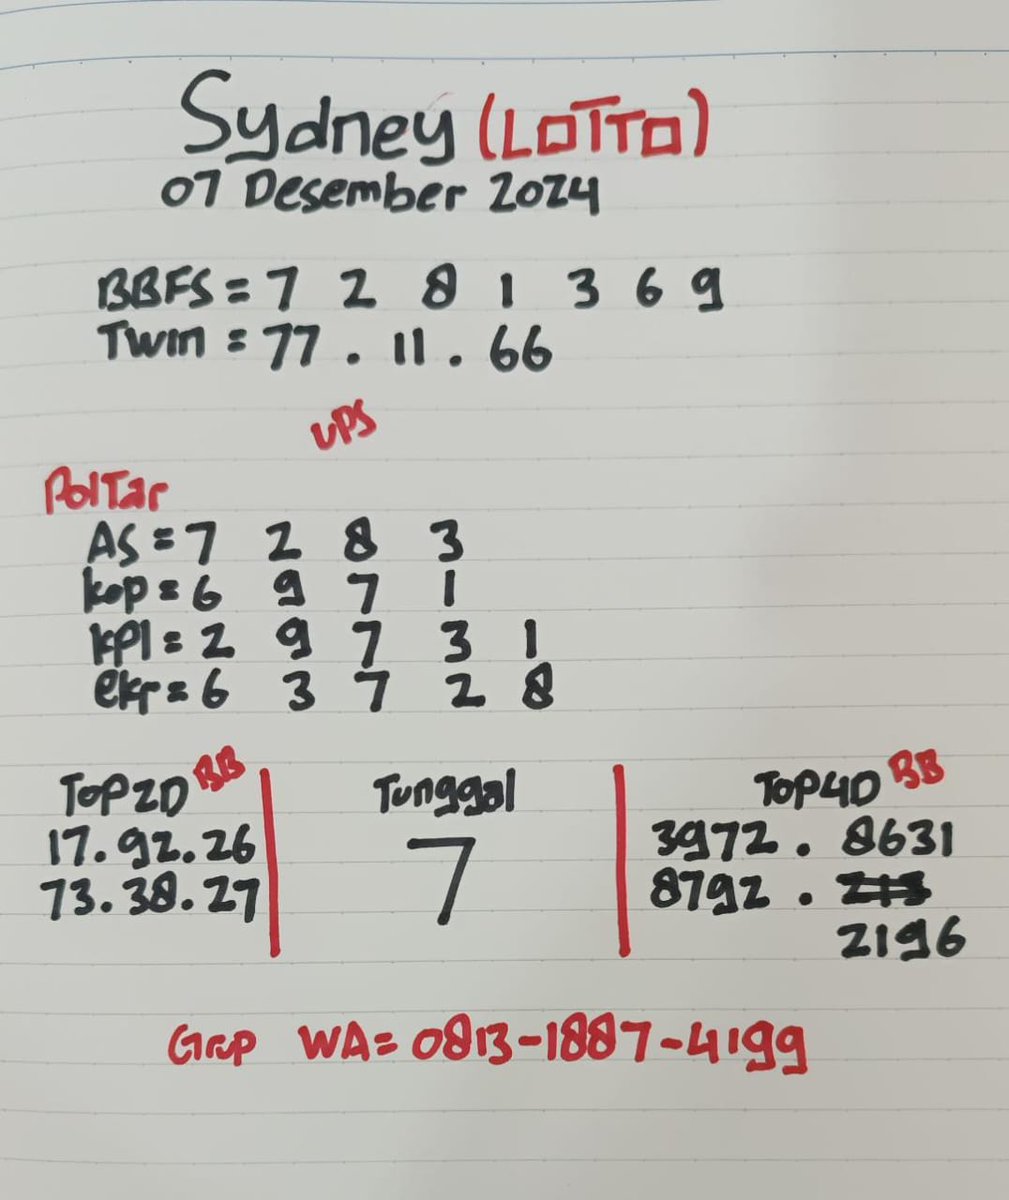 Sydney (LOTTO)
07 Desember 2024
BBFS = 7 2 8 1 3 6 9
Twin = 77 . 11 . 66
UPS
PolTar
AS = 7 2 8 3
kop = 6 9 7 1
kpl = 2 9 7 3 1
ekr = 6 3 7 2 8
ToP2D BB
17.92.26
73.38.27
Tunggal
7
ToP4D BB
3972 . 8631
8792 .
2196
Grup WA = 0813-1887-4199